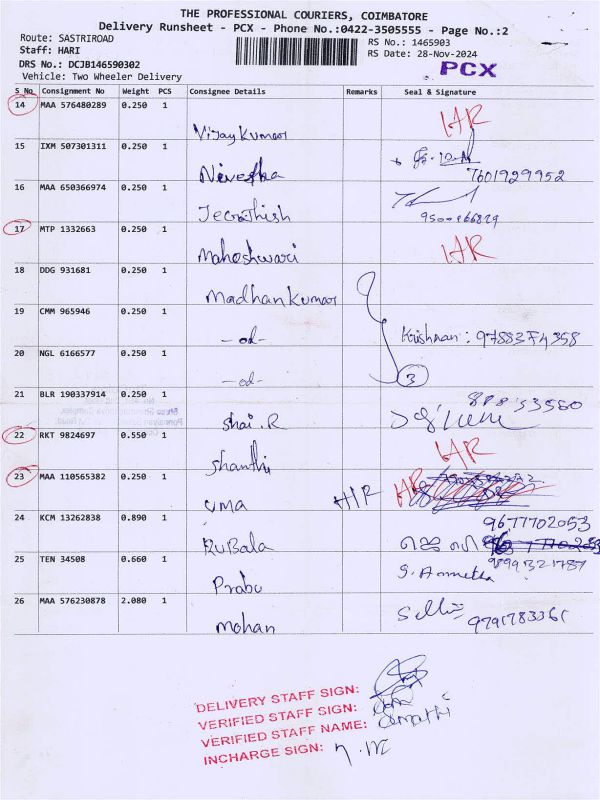 THE PROFESSIONAL COURIERS, COIMBATORE
Delivery Runsheet - PCX - Phone No.:0422-3505555 - Page No.:2
Route: SASTRIROAD RS No.: 1465903
Staff: HARI RS Date: 28-Nov-2024
DRS No.: DCJB146590302 PCX
Vehicle: Two Wheeler Delivery
S No Consignment No Weight PCS Consignee Details Remarks Seal & Signature
14 MAA 576480289 0.250 1 Vijay Kumar HR
15 IXM 507301311 0.250 1 Nivetha 7601929952
16 MAA 650366974 0.250 1 Jeerthish
17 MTP 1332663 0.250 1 Maheshwari HR
18 DDG 931681 0.250 1 Madhan Kumar
19 CMM 965946 0.250 1 -od- Krishnan: 9788374358
20 NGL 6166577 0.250 1 -od- 3
21 BLR 190337914 0.250 1 Shai.R
22 RKT 9824697 0.550 1 Shanthi HR
23 MAA 110565382 0.250 1 Uma HR HR
24 KCM 13262838 0.890 1 RuBala 9677702053
25 TEN 34508 0.660 1 Prabu
26 MAA 576230878 2.080 1 Mohan 9791783361
DELIVERY STAFF SIGN:
VERIFIED STAFF SIGN:
VERIFIED STAFF NAME:
INCHARGE SIGN: